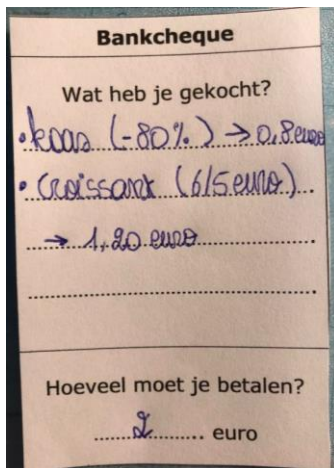 Bankcheque
Wat heb je gekocht?
• kaas (-80%) → 0,8 euro
• Croissant (6/5 euro)
→ 1,20 euro
Hoeveel moet je betalen?
2 euro